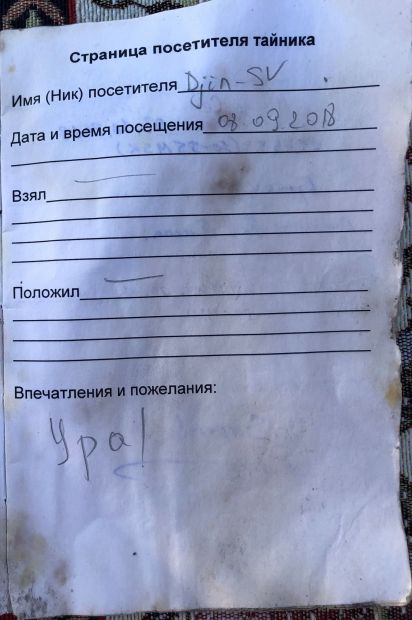 Страница посетителя тайника
Имя (Ник) посетителя Djin-SV
Дата и время посещения 08 09.2018
Взял —
Положил —
Впечатления и пожелания:
Ура!